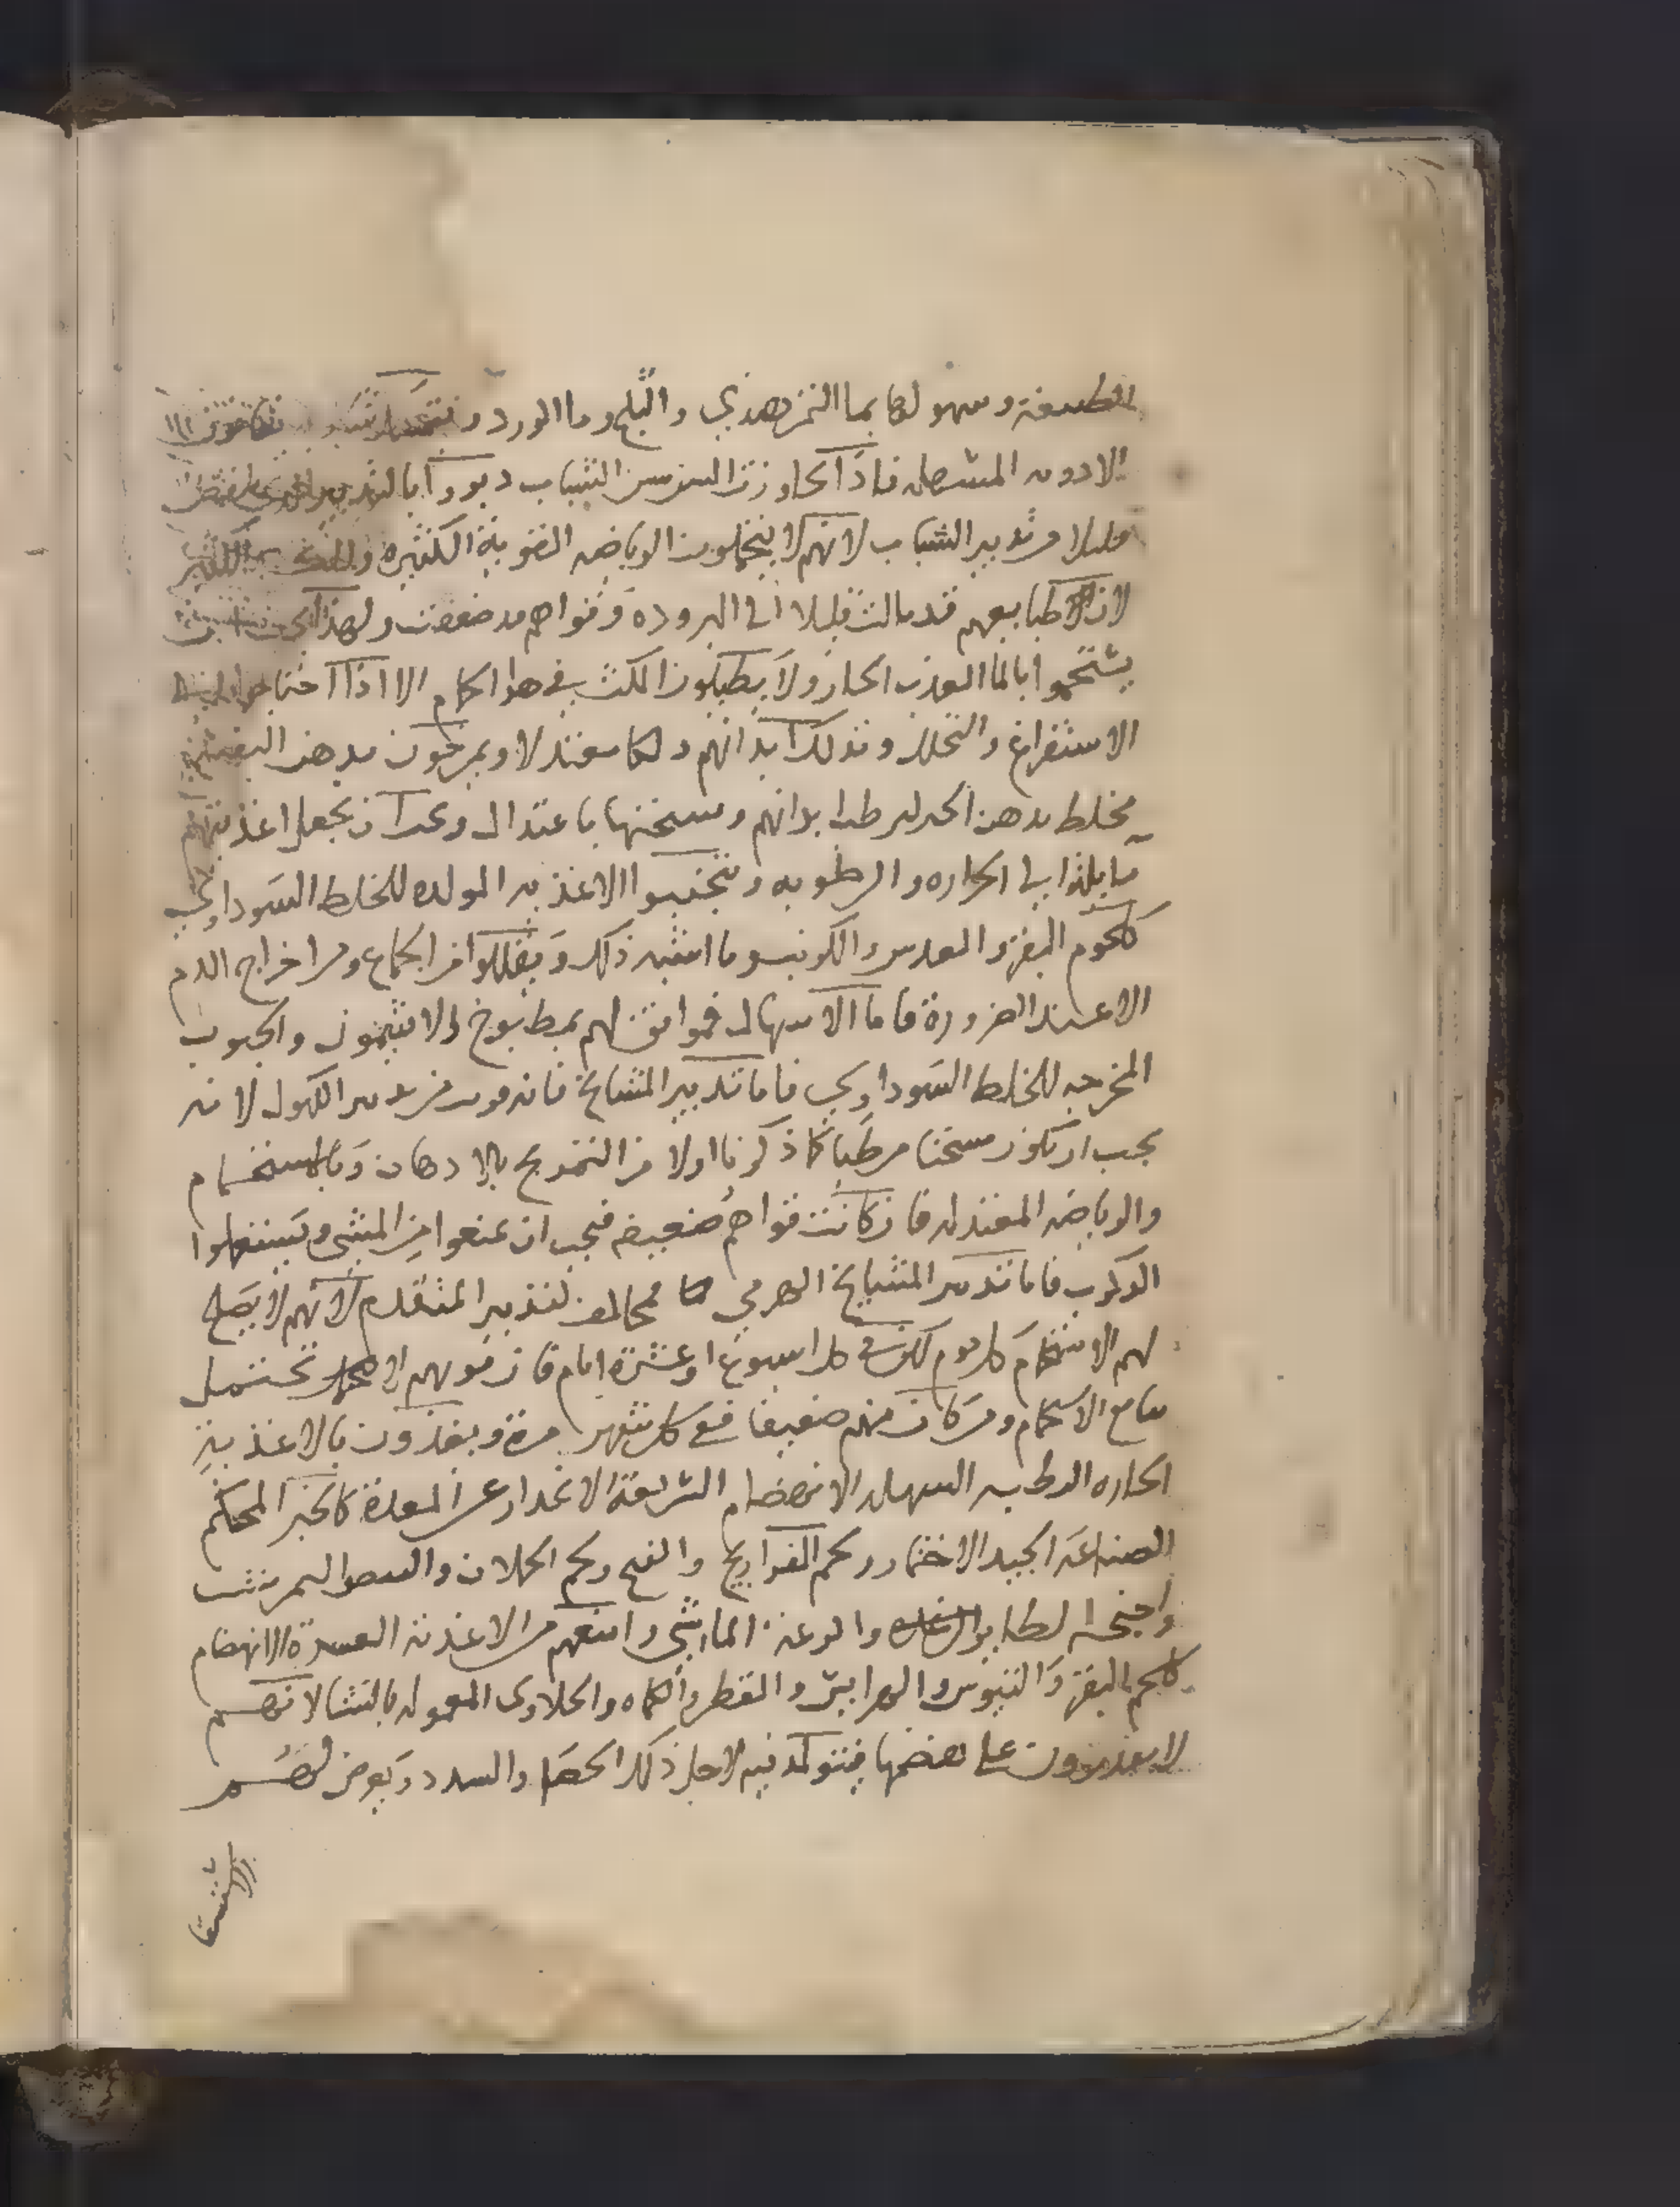 الطبيعة وسهولها بما التمر هندي والثلج وما الورد و
الادويه المسهله فاذا تجاوزت السن سن الشباب دبروا بالتدبير
قليلا من تدبير الشباب لانهم لا يتحملون الرياضه القوية الكثيره
لان طبايعهم قد مالت قليلا الى البروده وقواهم قد ضعفت ولهذا يجب ان
يستحموا بالما العذب الحار ولا يطيلون المكث في هوا الحمام الا اذا احتاجوا الى
الاستفراغ والتحلل وتدلك ابدانهم دلكا معتدلا ويمرخون بدهن البنفسج
مخلط بدهن الخل ليرطب ابدانهم ويسخنها باعتدال ويجب ان يجعل اغذيتهم
مايله الى الحراره والرطوبه ويتجنبوا الاغذيه المولده للخلط السوداوي
كلحوم البقر والعدس والكرنب وما اشبه ذلك ويقللوا من الجماع ومن اخراج الدم
الا عند الضرورة فاما الاسهال فموافق لهم بمطبوخ الافتيمون والحبوب
المخرجه للخلط السوداوي فاما تدبير المشايخ فانه قريب من تدبير الكهول لانه
يجب ان يكون مسخنا مرطبا كما ذكرنا اولا من التمريخ بالادهان وبالاستحمام
والرياضه المعتدله فان كانت قواهم ضعيفه فيجب ان يمنعوا من المشي ويستعملوا
الركوب فاما تدبير المشايخ الهرمي مخالف لتدبير المتقدم لانهم لا يصلح
لهم الاستحمام كل يوم لكن في كل اسبوع او عشرة ايام فان قوتهم لا تحتمل
تتابع الاستحمام ومن كان منهم ضعيفا ففي كل شهر مرة ويغذون بالاغذية
الحاره الرطبه السهله الانهضام السريعة الانحدار عن المعدة كالخبز المحكم
الصناعة الجيد الاختمار ولحم الفراريج والقبج ولحم الحملان والبيض النمرشت
واجنحه الطايو والرعد الماشي وامنعهم من الاغذية العسرة الانهضام
كلحم البقر والتيوس والهرايس والفطر والكماه والحلاوى المعموله بالنشا لانهم
لا يقدرون على هضمها فيتولد فيهم لاجل ذلك الحصا والسدد ويعرض لهم